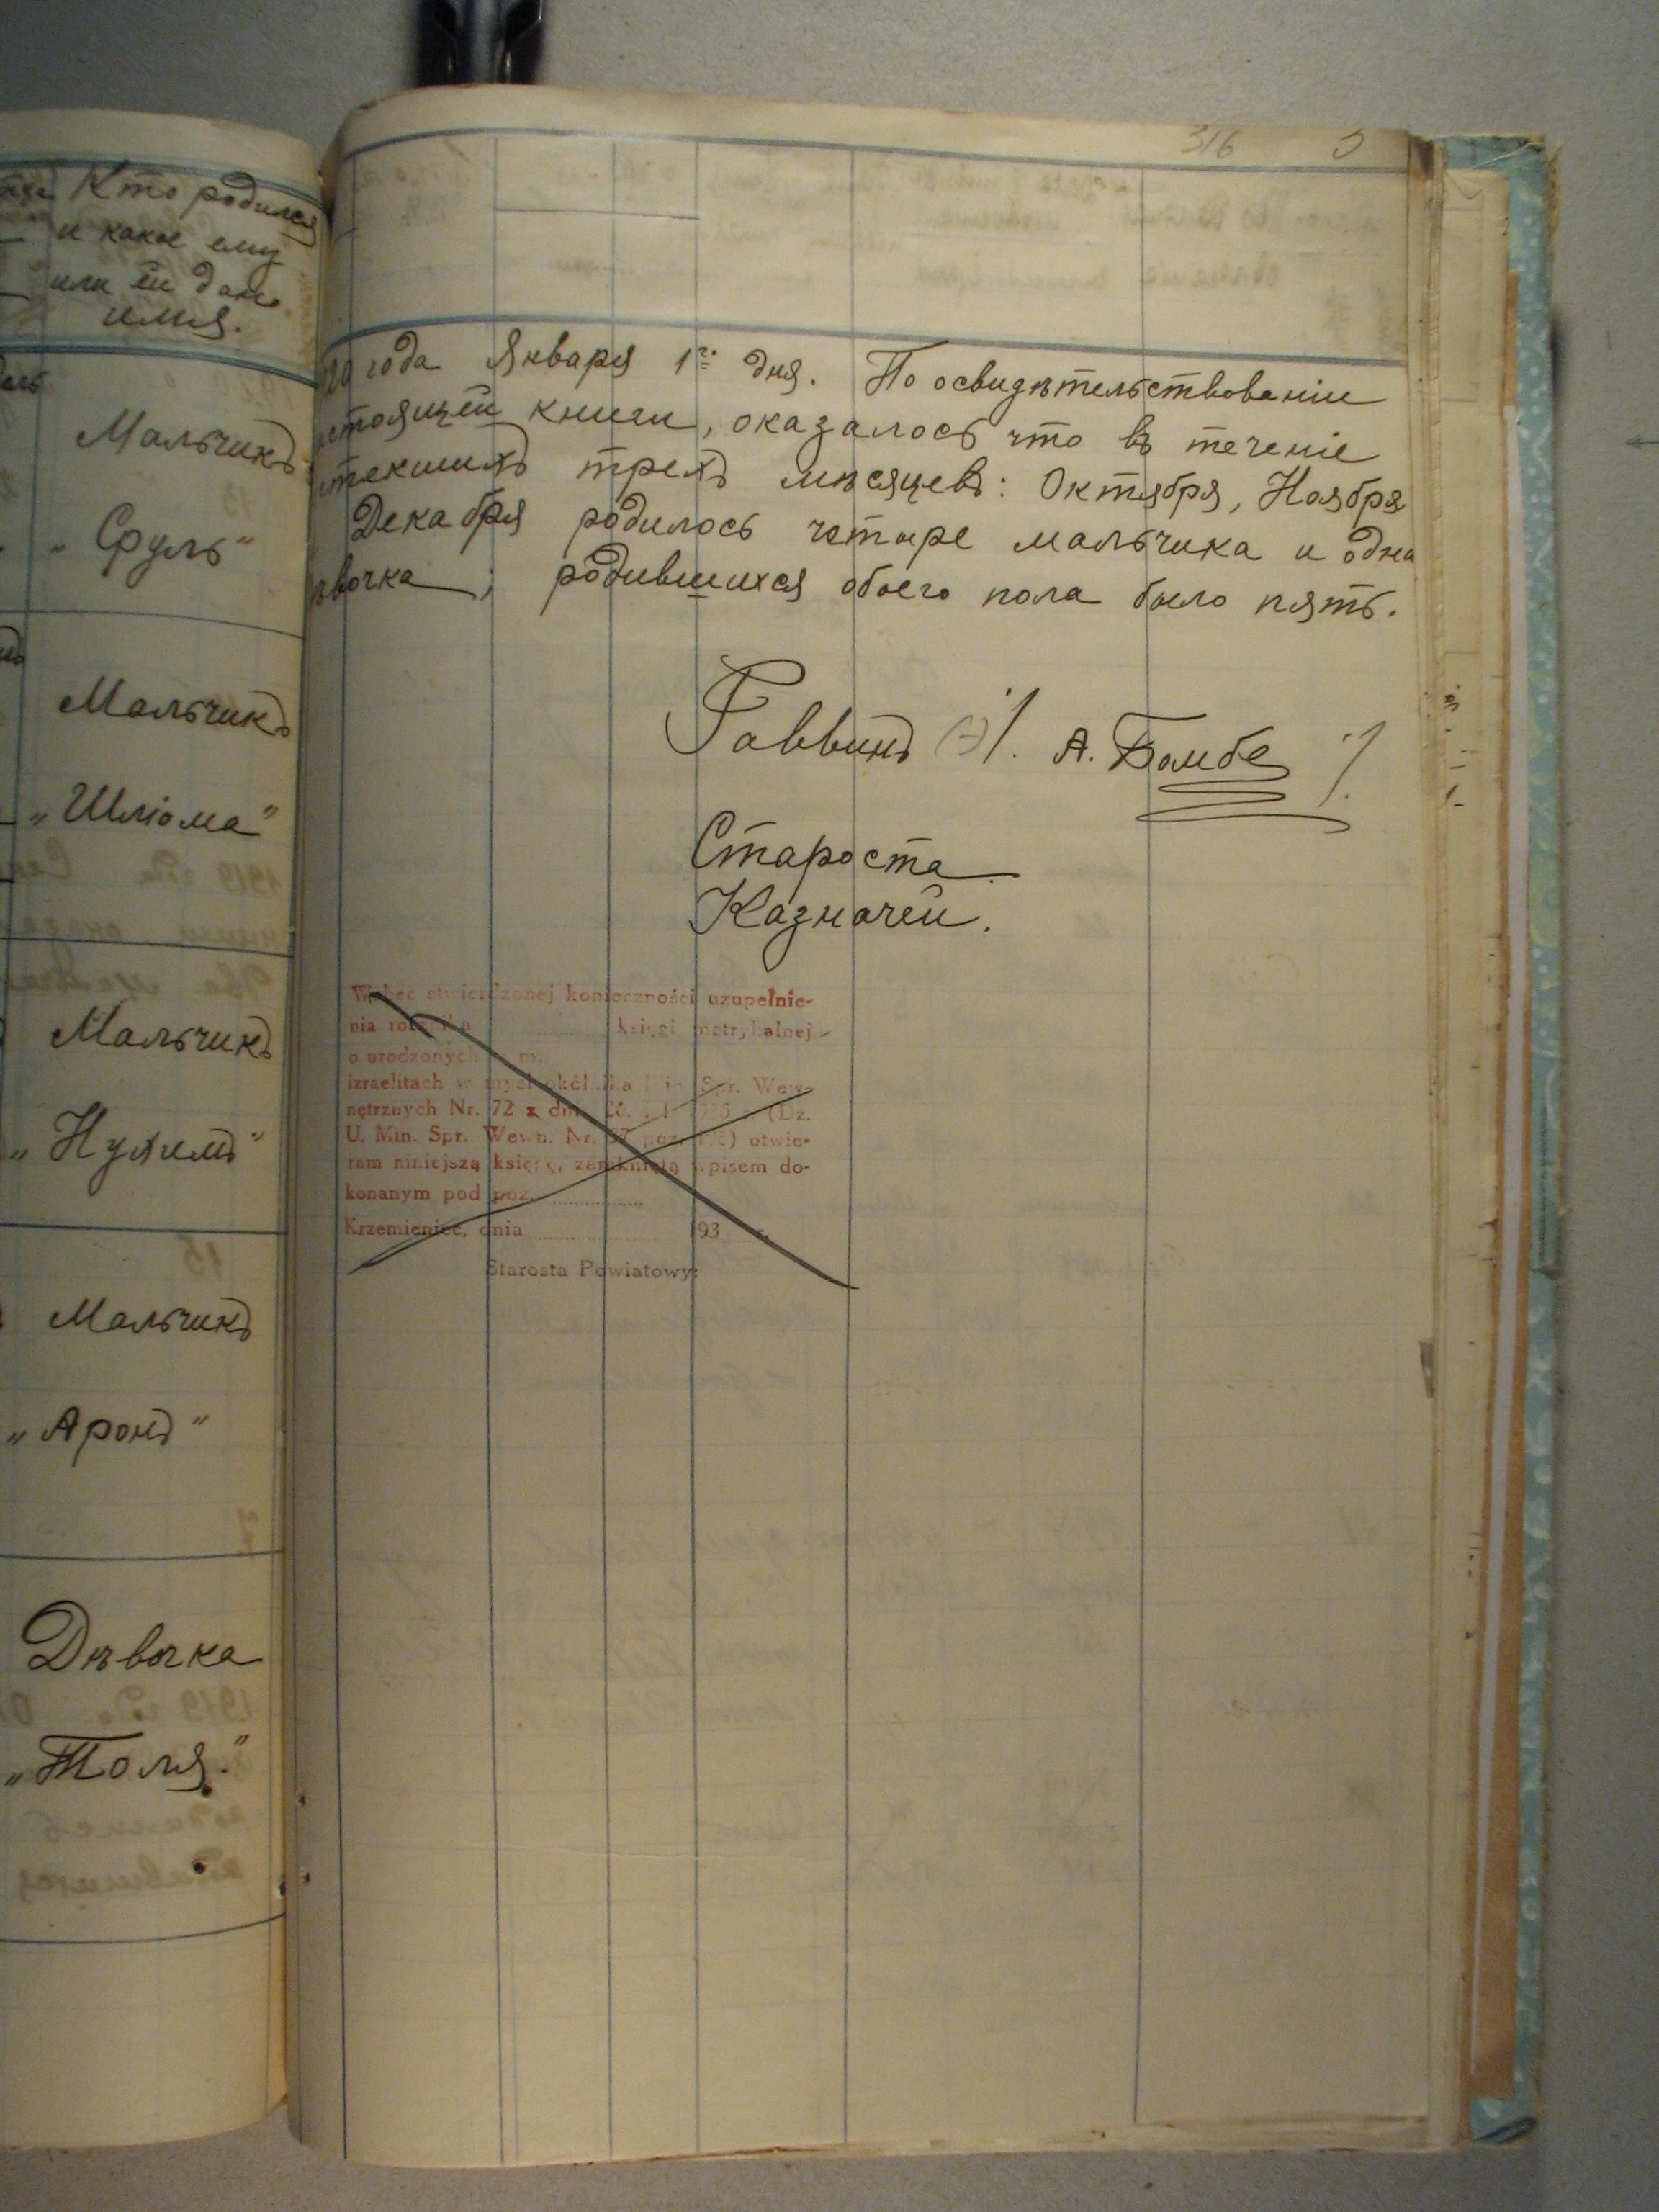 Кто родился
и какое ему
или ей дано
имя.
Мальчикъ
"Сруль"
Мальчикъ
"Шліома"
Мальчикъ
"Нухимъ"
Мальчикъ
"Аронъ"
Дѣвочка
"Толя."
316
года Января 1го дня. По освидѣтельствованіи
стоящей книги, оказалось что въ теченіе
текшихъ трехъ мѣсяцевъ: Октября, Ноября
Декабря родилось четыре мальчика и одна
ѣвочка; родившихся обоего пола было пять.
Раввинъ А. Бамбе
Староста
Казначей.
Wobec stwierdzonej konieczności uzupełnie-
nia rocznika księgi metrykalnej
o urodzonych m.
izraelitach w myśl okólnika Min. Spr. Wew-
nętrznych Nr. 72 z dn. (Dz.
U. Min. Spr. Wewn. Nr. poz. ) otwie-
ram niniejszą księgę, zamkniętą wpisem do-
konanym pod poz.
Krzemieniec, dnia 193 r.
Starosta Powiatowy: